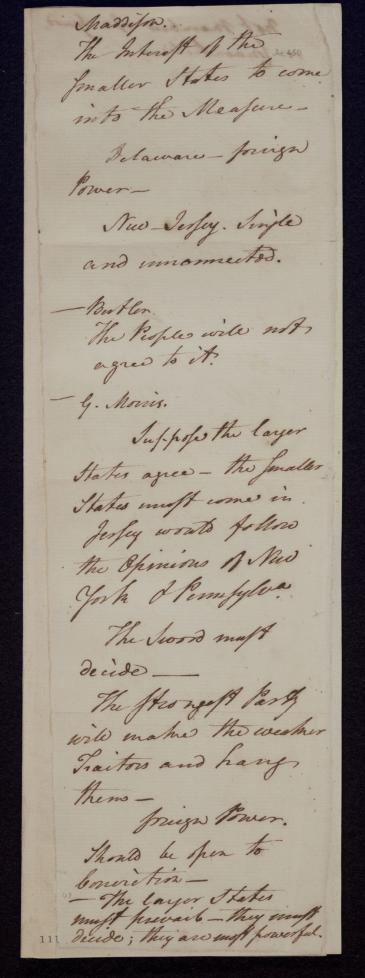 Maddison.
The Interest of the
smaller States to come
into the Measure —
Delaware — foreign
Power —
New-Jersey. single
and unconnected.
— Butler.
The People will not
agree to it.
— G. Morris.
Suppose the larger
States agree — the smaller
States must come in.
Jersey would follow
the Opinions of New
York & Pennsylva.
The Sword must
decide —
The strongest Party
will make the weaker
Traitors and hang
them —
foreign Power.
Should be open to
Conviction —
— The larger States
must prevail — they must
decide; they are most powerful.
111